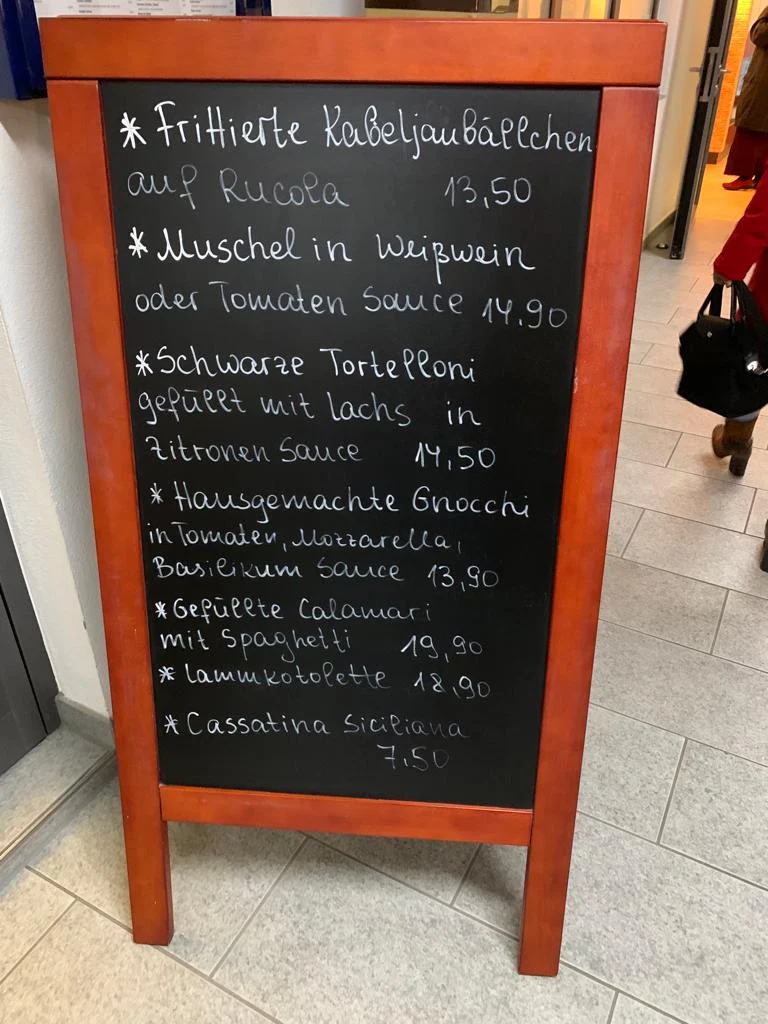 * Frittierte Kabeljaubällchen
auf Rucola 13,50
* Muschel in Weißwein
oder Tomaten Sauce 14,90
* Schwarze Tortelloni
gefüllt mit Lachs in
Zitronen Sauce 14,50
* Hausgemachte Gnocchi
in Tomaten, Mozzarella,
Basilikum Sauce 13,90
* Gefüllte Calamari
mit Spaghetti 19,90
* Lammkotolette 18,90
* Cassatina Siciliana
7,50